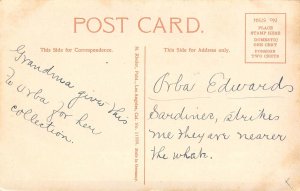 POST CARD.
This Side for Correspondence.
This Side for Address only.
PLACE
STAMP HERE
DOMESTIC
ONE CENT
FOREIGN
TWO CENTS
Grandma give this
to Orba for her
collection.
Orba Edwards
Sardines, strikes
me they are nearer
the whale.
M. Rieder, Publ., Los Angeles, Cal. No.
Made in Germany.